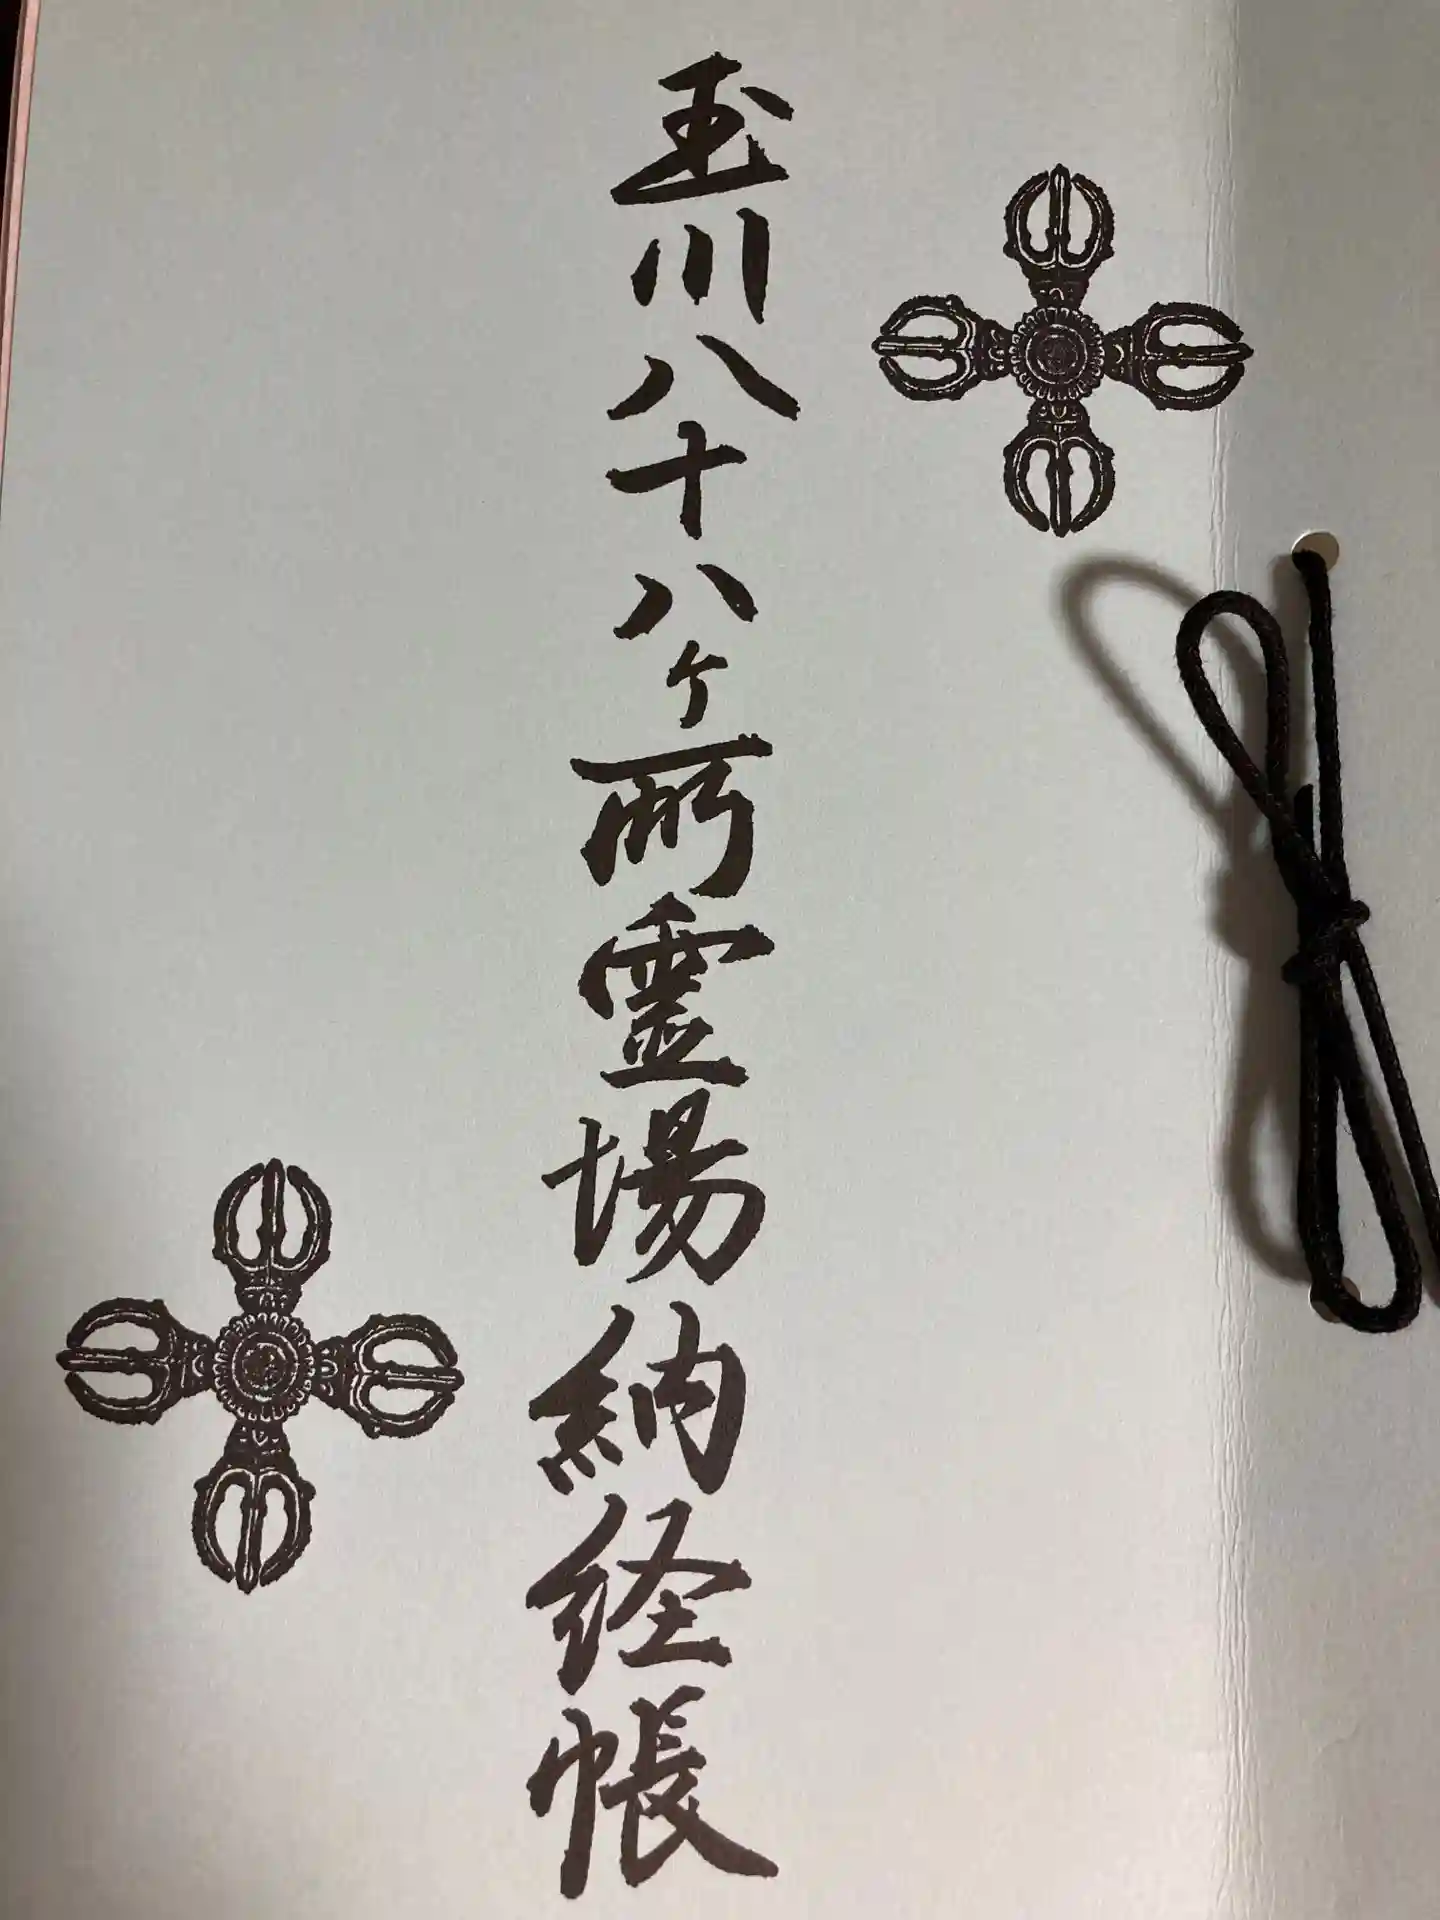 玉川八十八ヶ所霊場納経帳